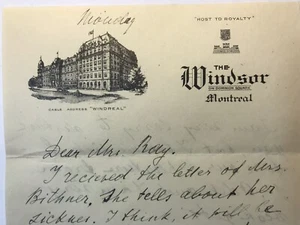 Monday
"HOST TO ROYALTY"
THE
Windsor
ON DOMINION SQUARE
Montreal
CABLE ADDRESS "WINDREAL"
Dear Mrs Ray.
I received the letter of Mrs.
Bithner. She tells about her
sickness. I think, it will be